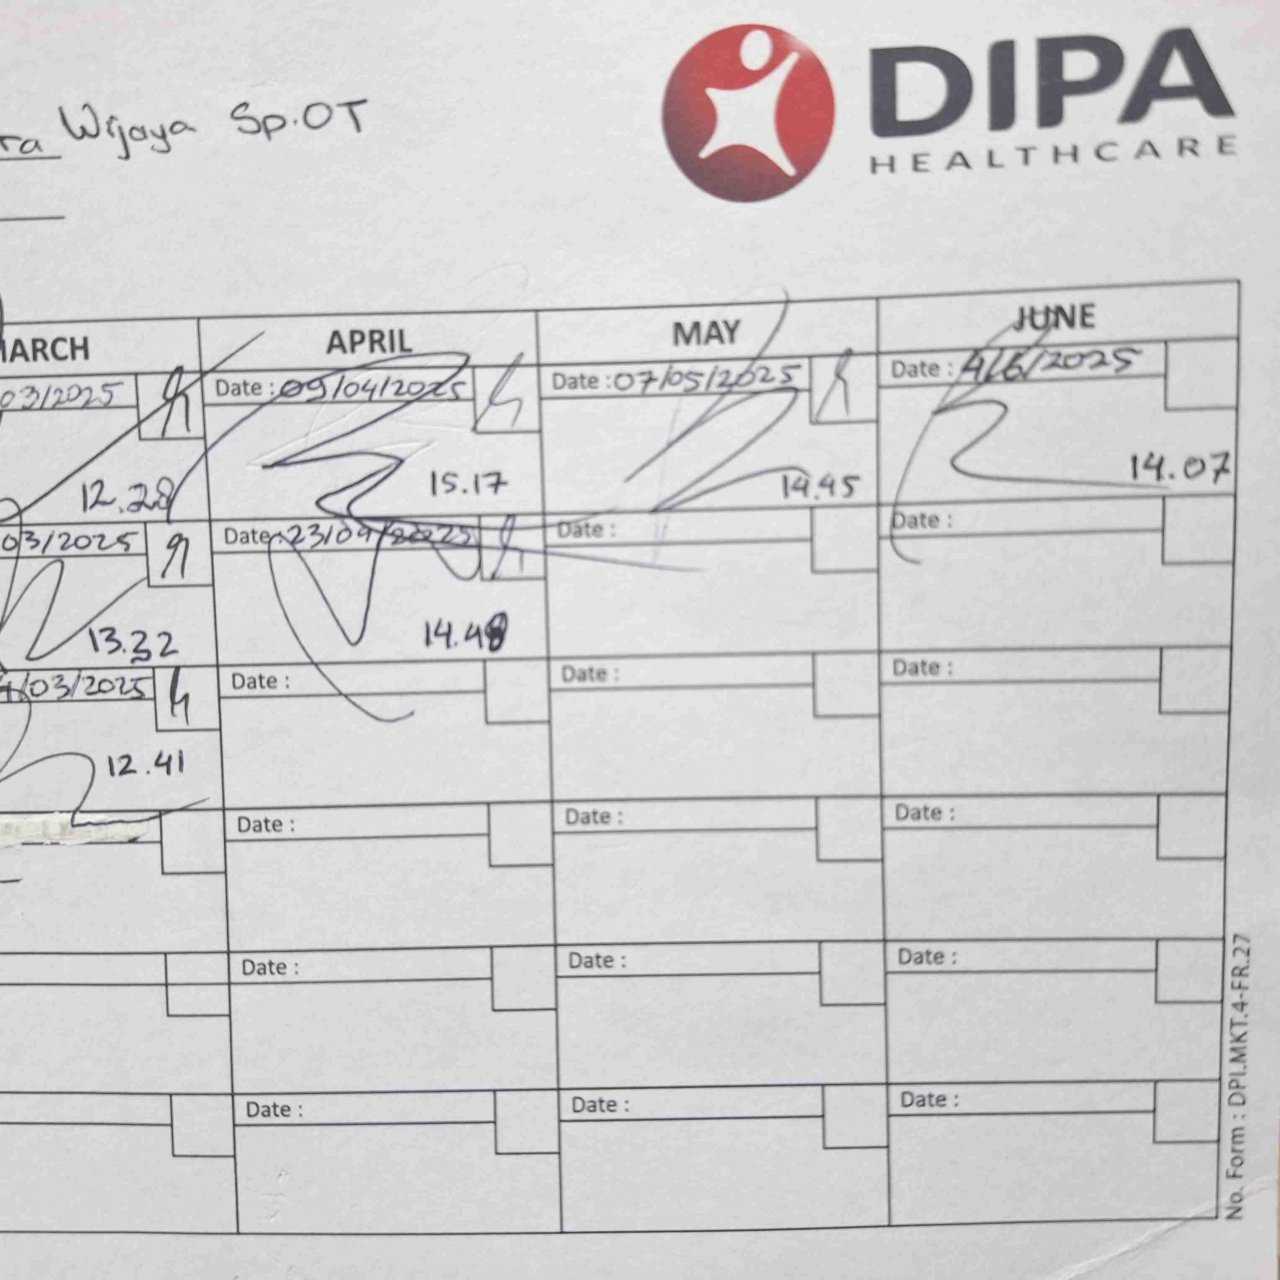 DIPA
HEALTHCARE
ra Wijaya Sp.OT
MARCH APRIL MAY JUNE
03/2025 Date : 09/04/2025 Date : 07/05/2025 Date : 4/6/2025
12.28 15.17 14.45 14.07
03/2025 Date : 23/04/2025 Date : Date :
13.32 14.48
/03/2025 Date : Date : Date :
12.41
Date : Date : Date :
Date : Date : Date :
Date : Date : Date :
No. Form : DPI.MKT.4-FR.27